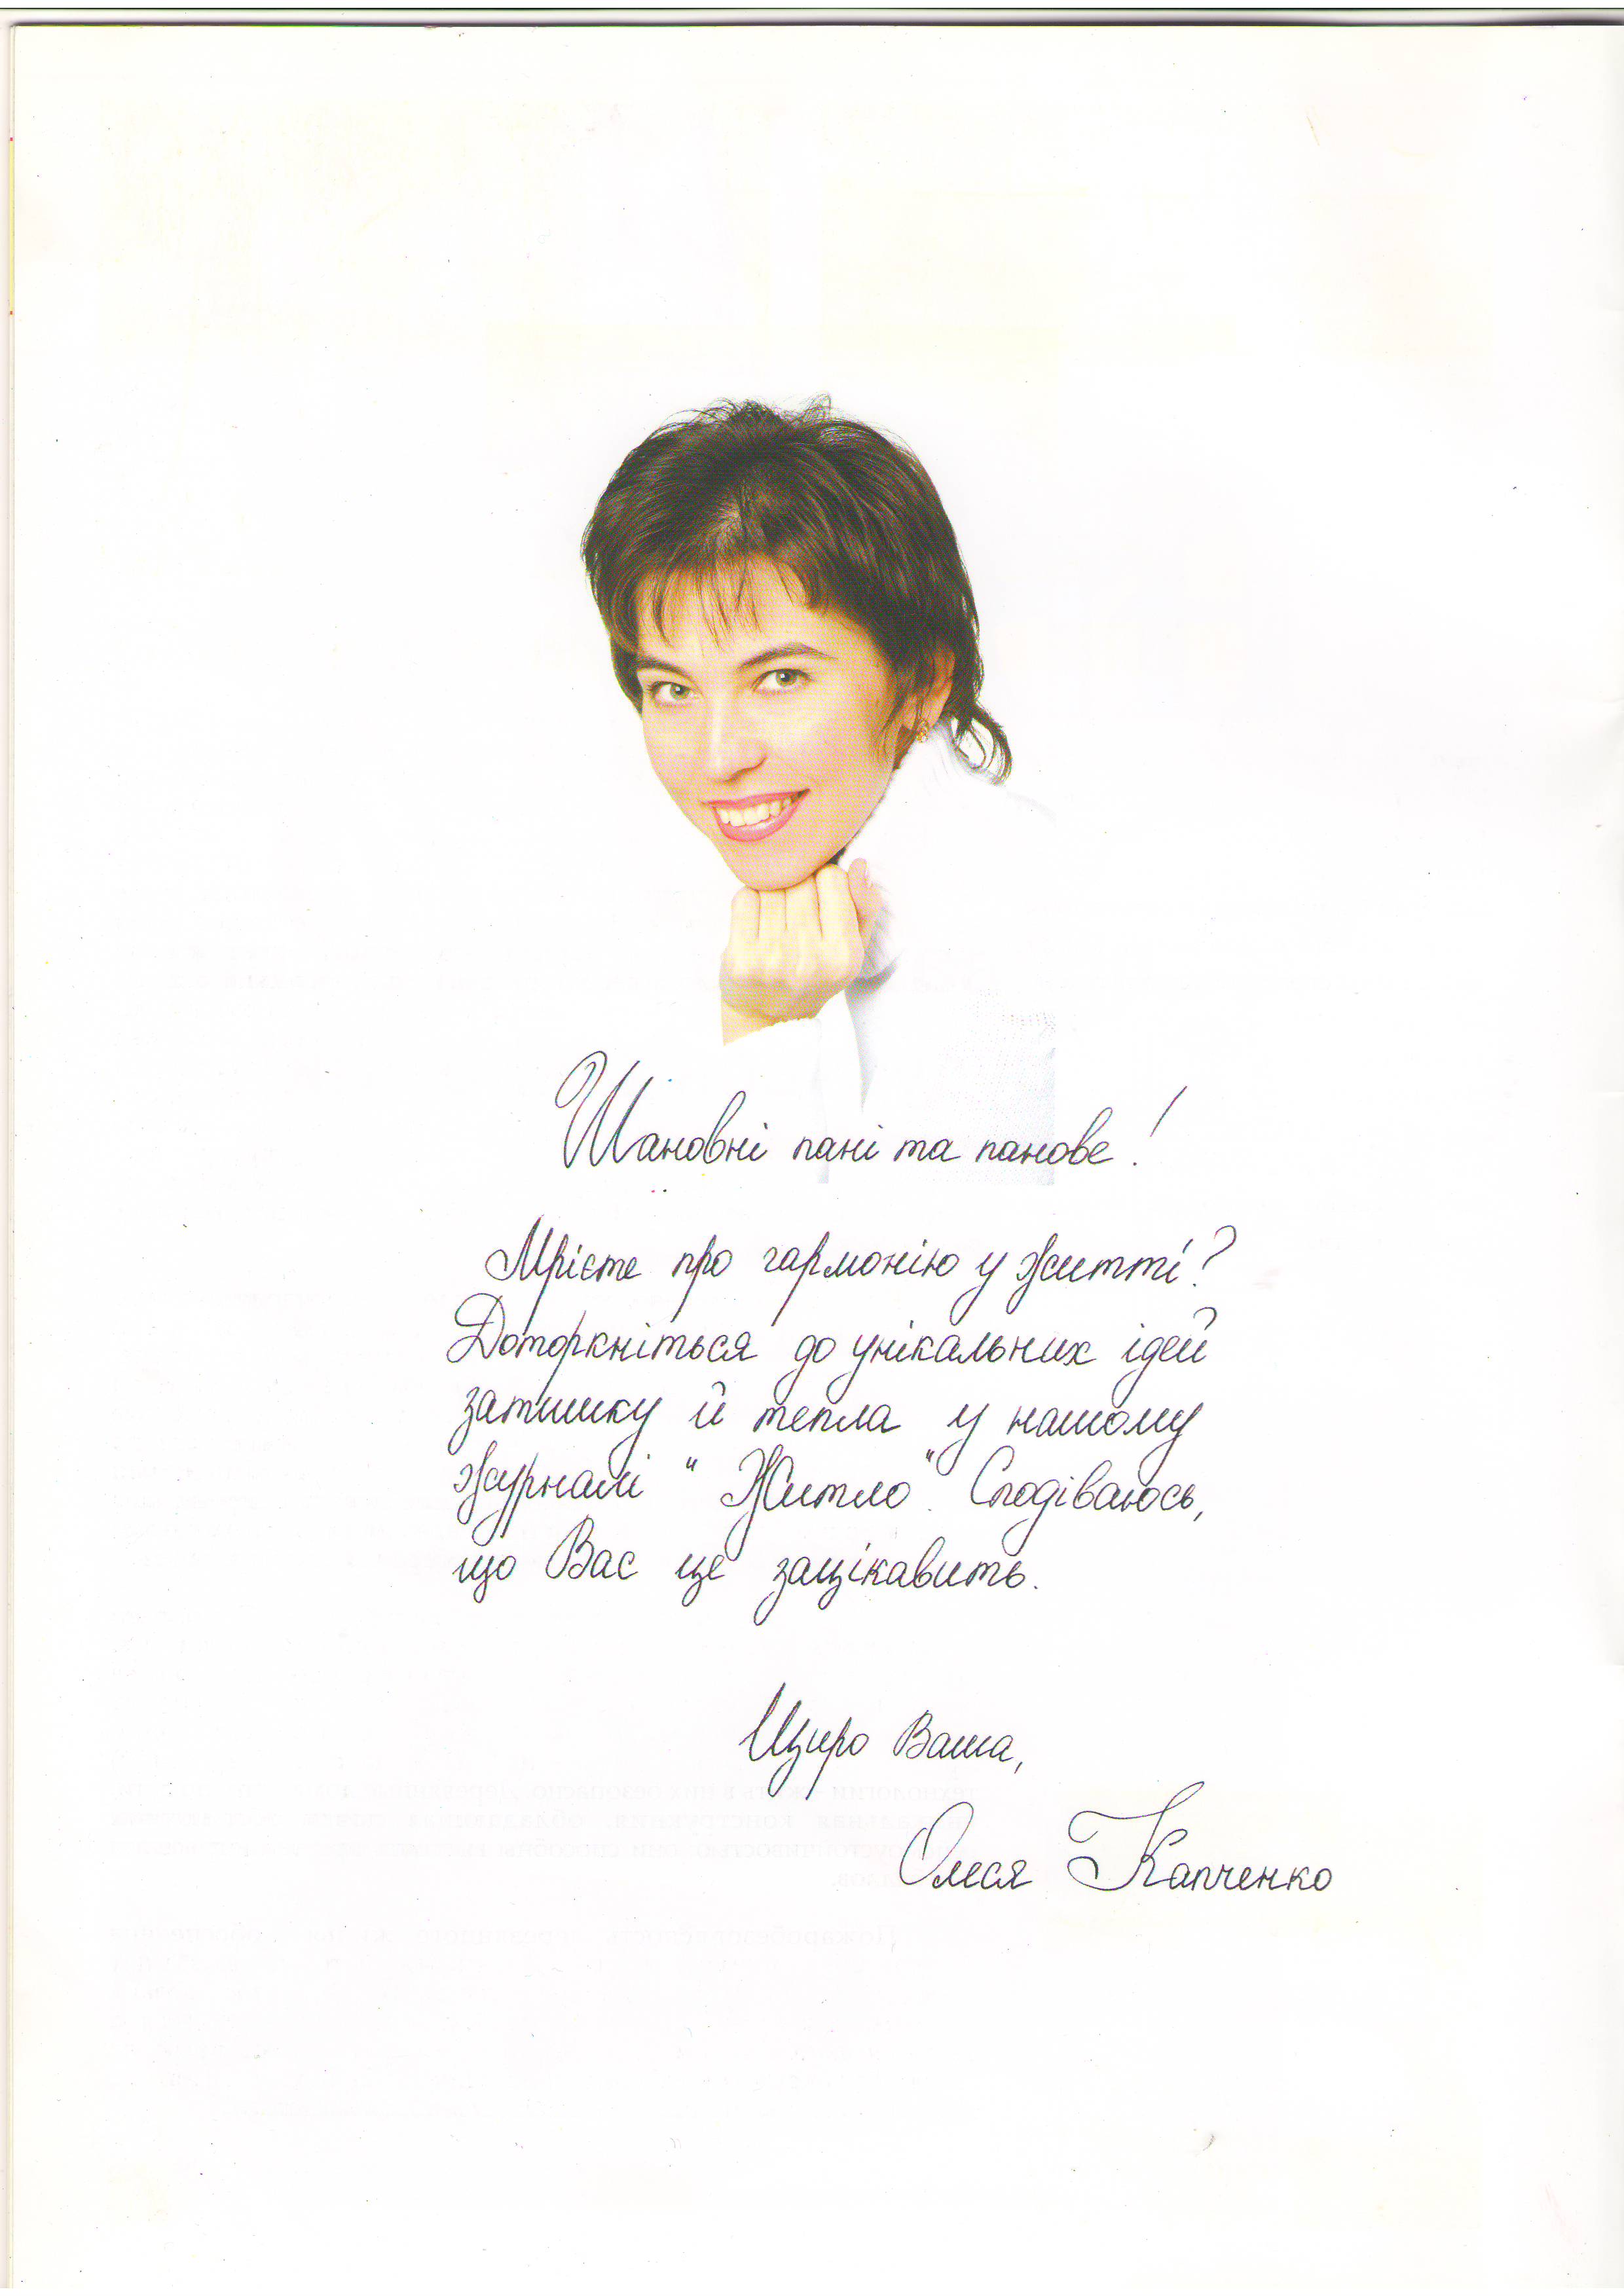 Шановні пані та панове!
Мрієте про гармонію у житті?
Доторкніться до унікальних ідей
затишку й тепла у нашому
журналі "Житло". Сподіваюсь,
що Вас це зацікавить.
Щиро Ваша,
Олеся Капченко